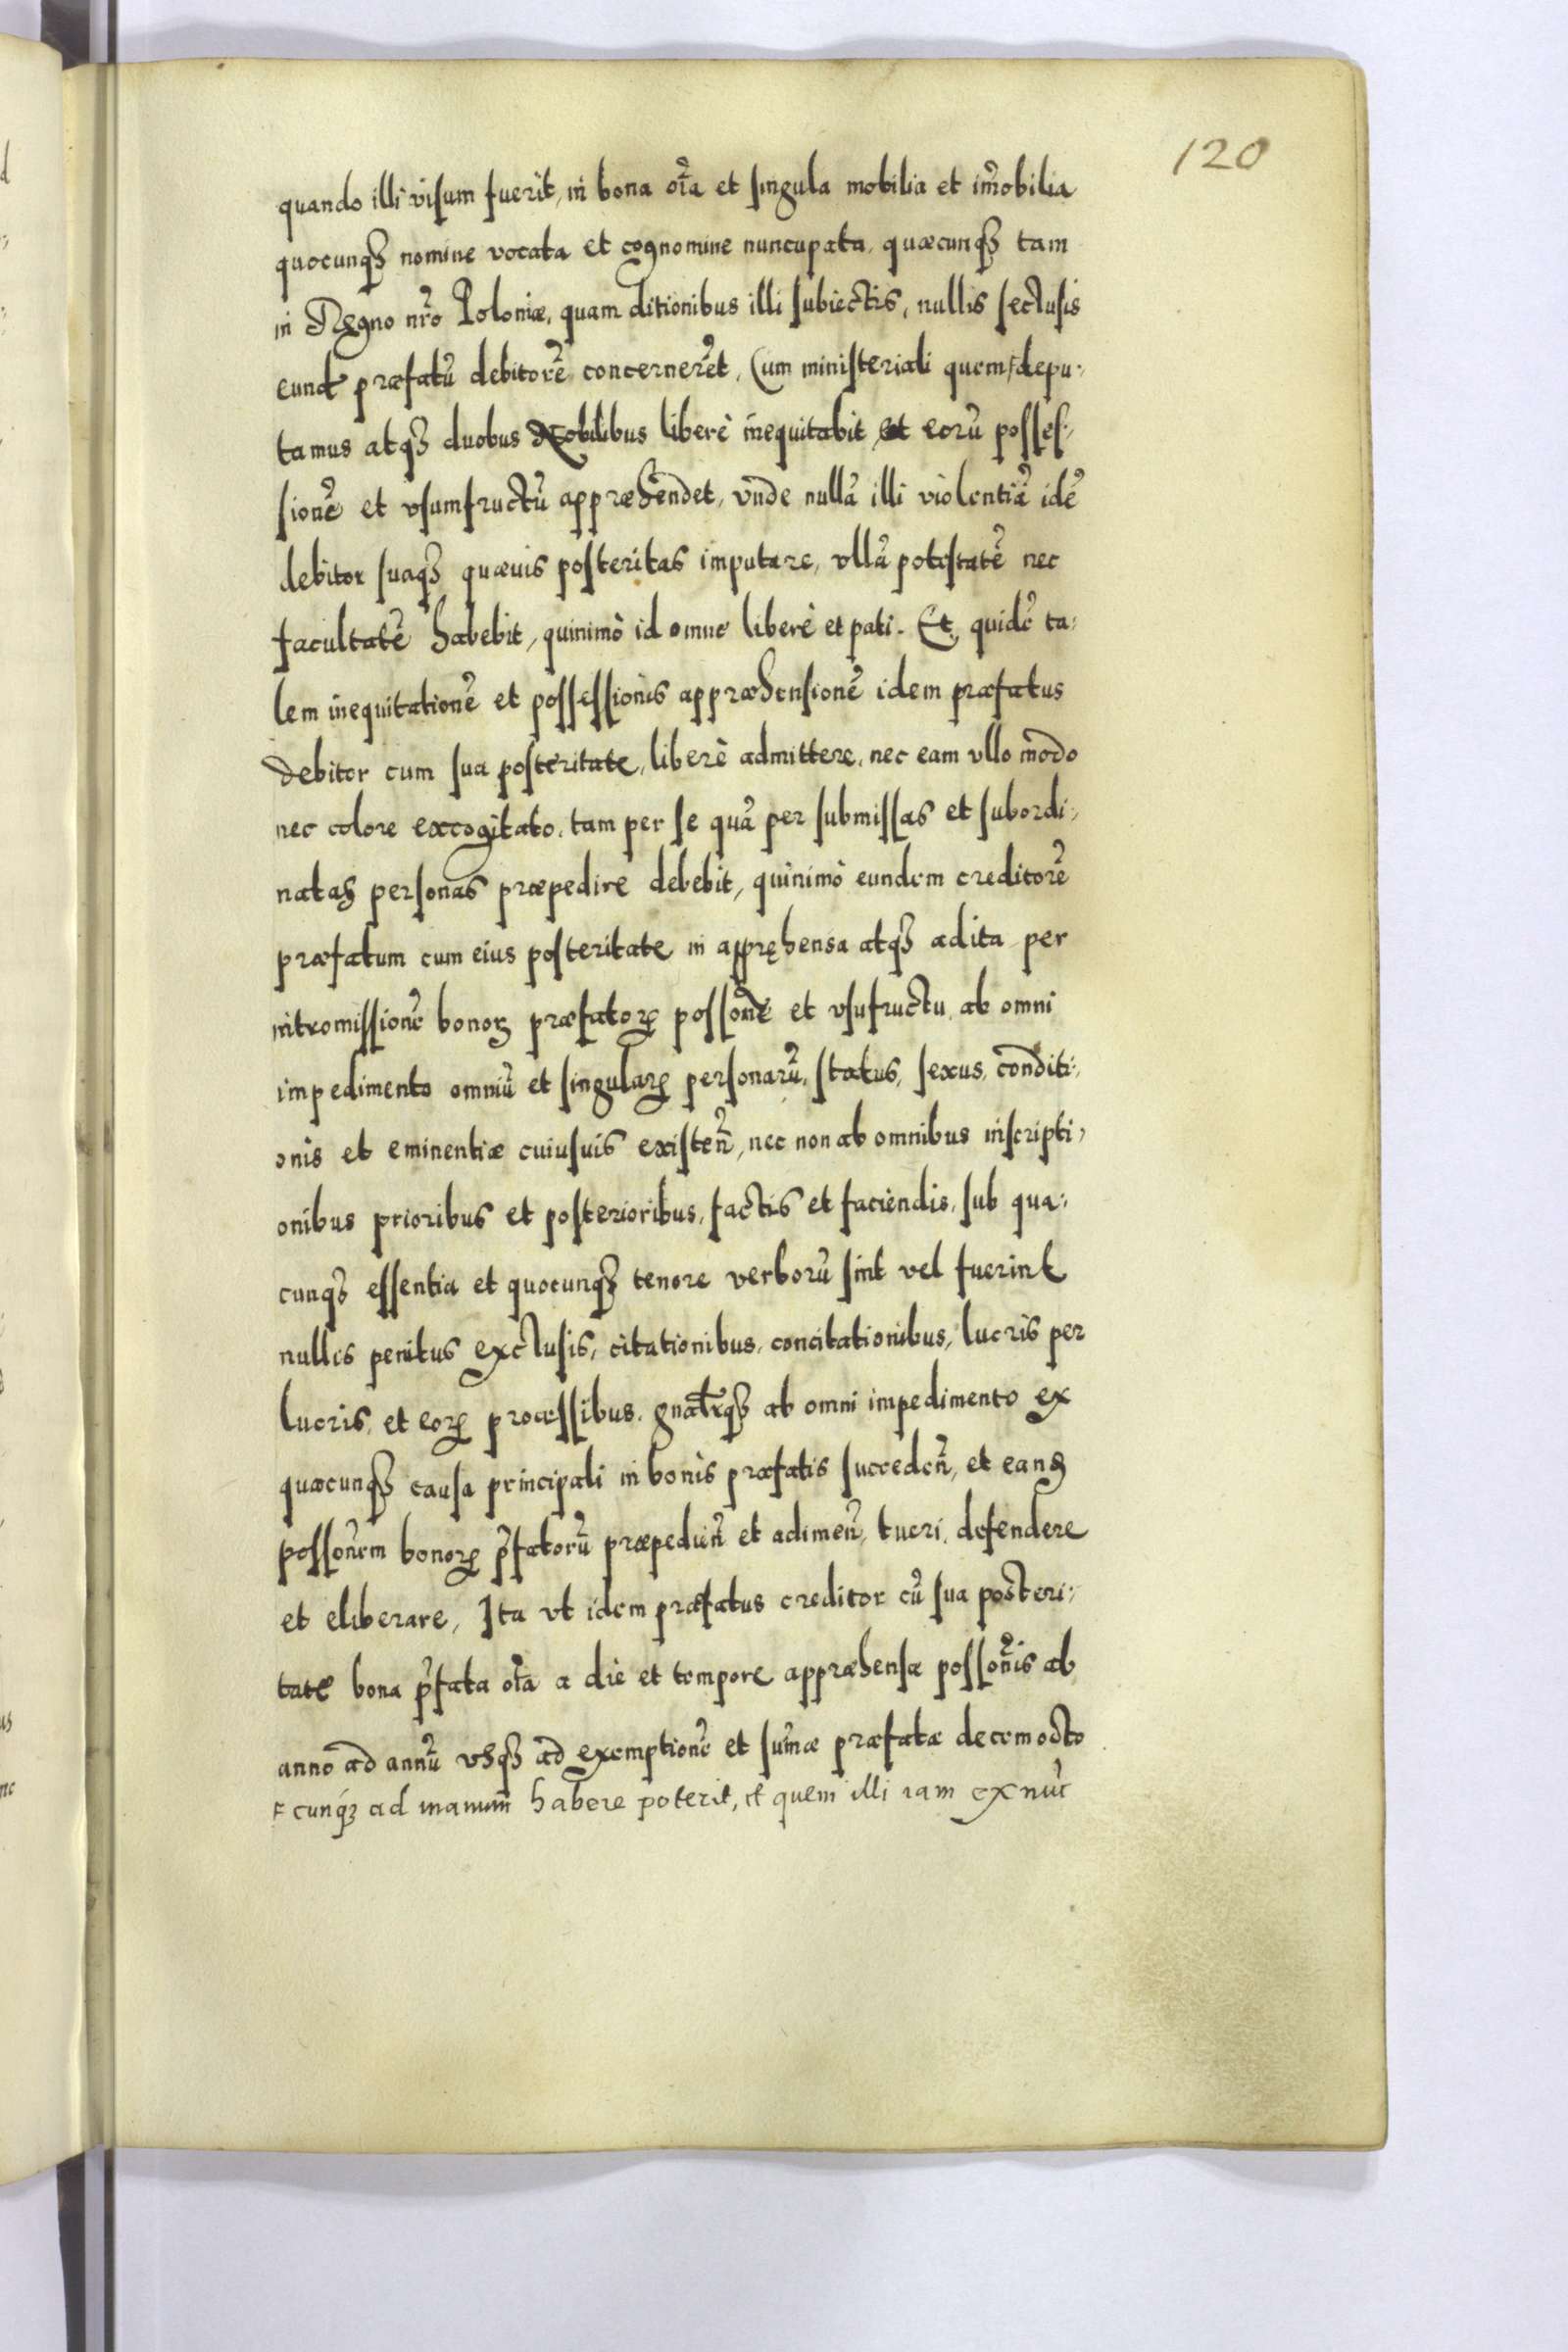 120
quando illi visum fuerit, in bona oı̃a et singula mobilia et im̃obilia
quocunqȝ nomine vocata et cognomine nuncupata, quæcunqȝ tam
in Regno nr̃o Poloniæ, quam ditionibus illi subiectis, nullis seclusis
eund præfatũ debitorẽ concernerẽt, Cum ministeriali quem ⊧ depu:
tamus atqȝ duobus Nobilibus liberè inequitabit, et eorũ posses:
sionẽ et vsumfructũ appræhendet, vnde nullã illi violentiã idẽ
debitor suaqȝ quæuis posteritas imputare, vllã potestatẽ nec
facultatẽ habebit, quinimò id omne liberè et pati. Et quidẽ ta:
lem inequitationẽ et possessionis appræhensionẽ idem præfatus
debitor cum sua posteritate, liberè admittere, nec eam vllo modo
nec colore excogitato, tam per se quã per submissas et subordi:
natas personas præpedire debebit, quinimò eundem creditorẽ
præfatum cum eius posteritate in apprȩhensa atqȝ adita per
intromissionẽ bonoꝝ præfatoꝝ possonẽ et vsufructu, ab omni
impedimento omniũ et singulaꝝ personarũ, status, sexus, conditi:
onis et eminentiæ cuiusuis existeñ, nec non ab omnibus inscripti:
onibus prioribus et posterioribus, factis et faciendis, sub qua:
cunqȝ essentia et quocunqȝ tenore verborũ sint vel fuerint
nullis penitus exclusis, citationibus, concitationibus, lucris per
lucris, et eoꝝ processibus, gnatr̃qȝ ab omni impedimento ex
quacunqȝ causa principali in bonis præfatis succedeñ, et eanȝ
possonẽm bonoꝝ p̃fatorũ præpediẽn et adimeñ, tueri, defendere
et eliberare, Ita vt idem præfatus creditor cũ sua posteri:
tate bona p̃fata oı̃a a die et tempore appræhensæ possoñis ab
anno ad annũ vsqȝ ad exemptionẽ et sum̃æ præfatæ decemocto
⊧ cunqȝ ad manum habere poterit, et quem illi iam ex nũc